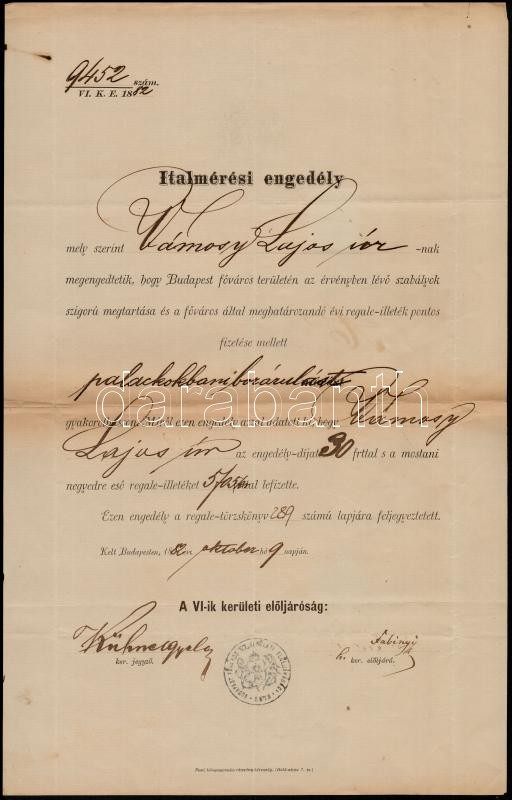 9452 szám.
VI. K. E. 1882
Italmérési engedély
mely szerint Vámosy Lajos úr -nak
megengedtetik, hogy Budapest főváros területén az érvényben lévő szabályok
szigorú megtartása és a főváros által meghatározandó évi regale-illeték pontos
fizetése mellett
palackokbani borárulást
darabanth
gyakorolhasson. Miről ezen engedély azzal adatott ki, hogy Vámosy
Lajos úr az engedély-díjat 30 frttal s a mostani
negyedre eső regale-illetéket lefizette.
Ezen engedély a regale-törzskönyv 289 számú lapjára feljegyeztetett.
Kelt Budapesten, 1882 évi oktober hó 9 napján.
A VI-ik kerületi előljáróság:
Fabinyi
ker. jegyző. h. ker. előljáró.